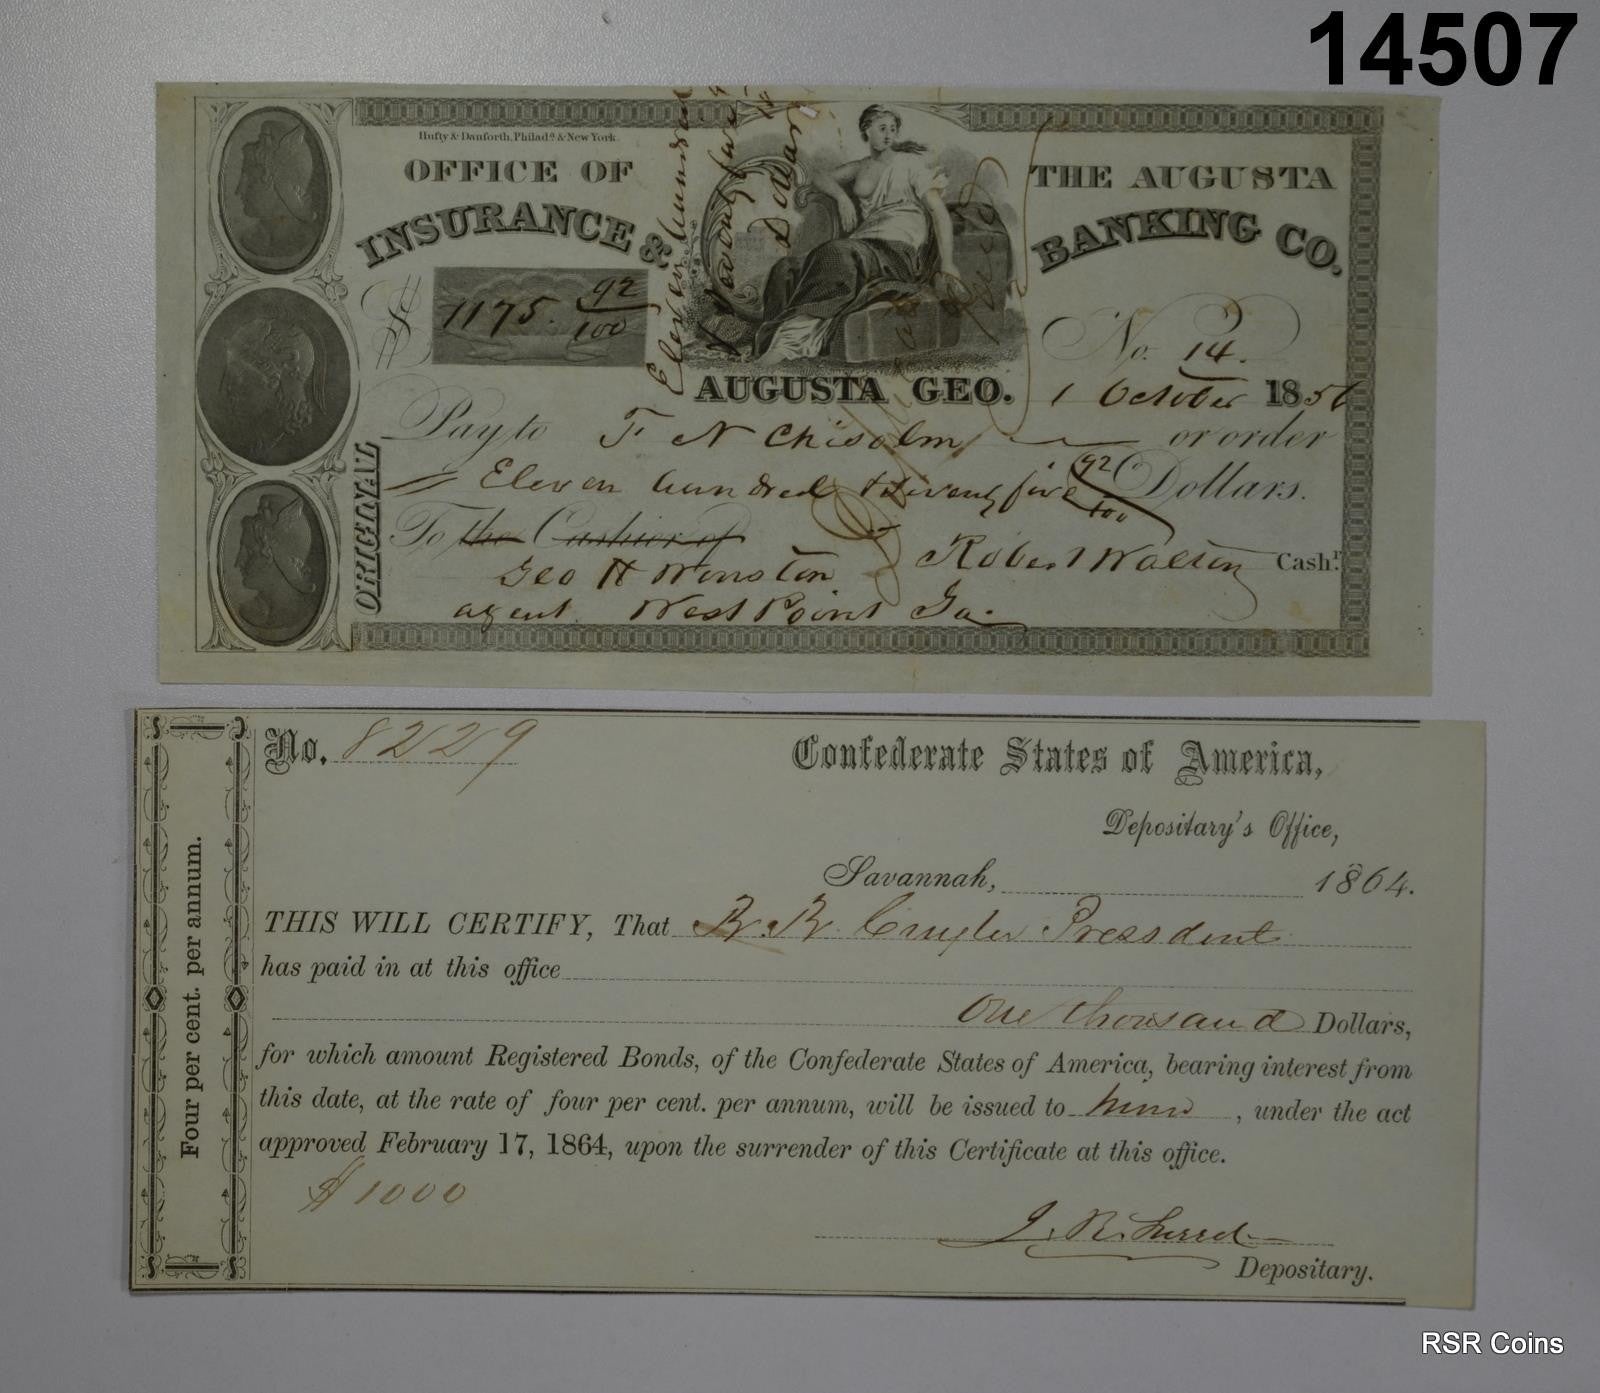 14507
Hufty & Danforth, Philada. & New York.
OFFICE OF THE AUGUSTA
INSURANCE & BANKING CO.
$ 1175. 92/100
Eleven hundred
Seventy five
Dollars
No. 14.
AUGUSTA GEO. 1 October 1856
Pay to F N Chisolm or order
Eleven hundred & Seventy five 92/100 Dollars.
To the Cashier of
Geo H Winston Robert Walton Cashr.
agent West Point Ga.
ORIGINAL
No. 8229
Confederate States of America,
Depositary's Office,
Savannah, 1864.
THIS WILL CERTIFY, That R. R. Cuyler President
has paid in at this office
One thousand Dollars,
for which amount Registered Bonds, of the Confederate States of America, bearing interest from
this date, at the rate of four per cent. per annum, will be issued to him, under the act
approved February 17, 1864, upon the surrender of this Certificate at this office.
$1000
Depositary.
Four per cent. per annum.
RSR Coins